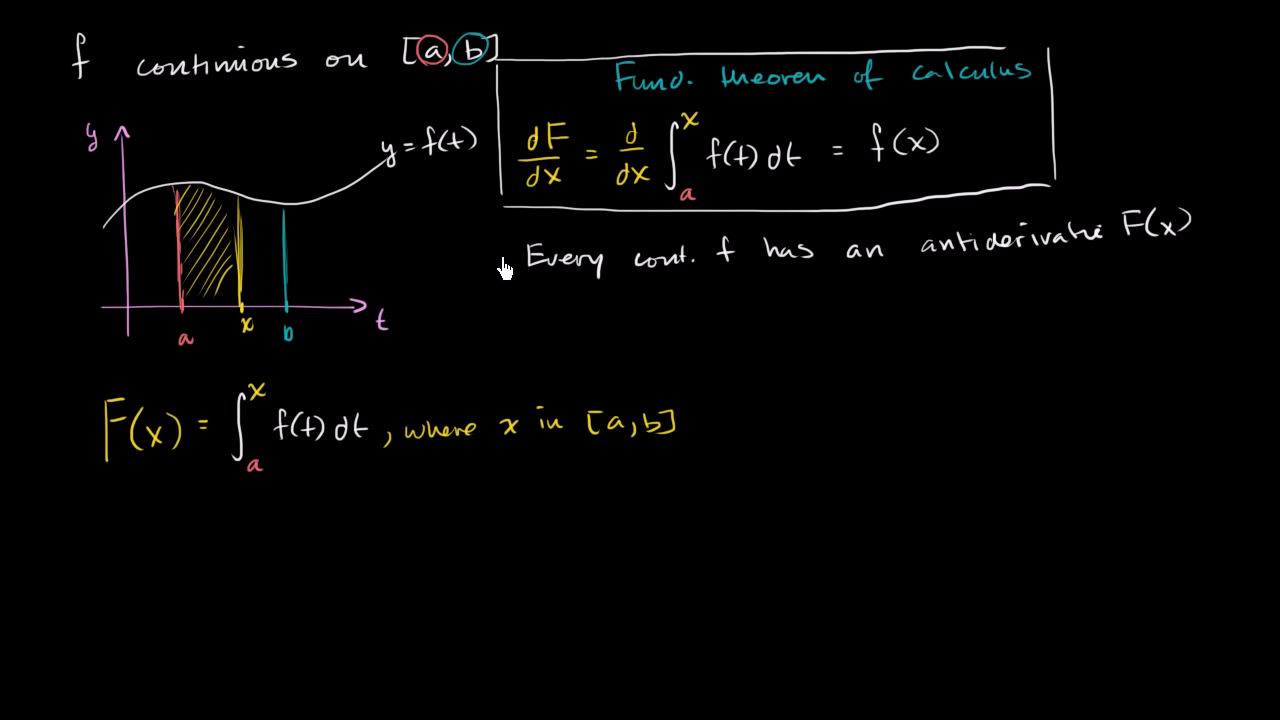 f continuous on [a, b]
Fund. theorem of calculus
dF/dx = d/dx ∫ₐˣ f(t) dt = f(x)
y
y = f(t)
Every cont. f has an antiderivative F(x)
t
a
x
b
F(x) = ∫ₐˣ f(t) dt, where x in [a, b]